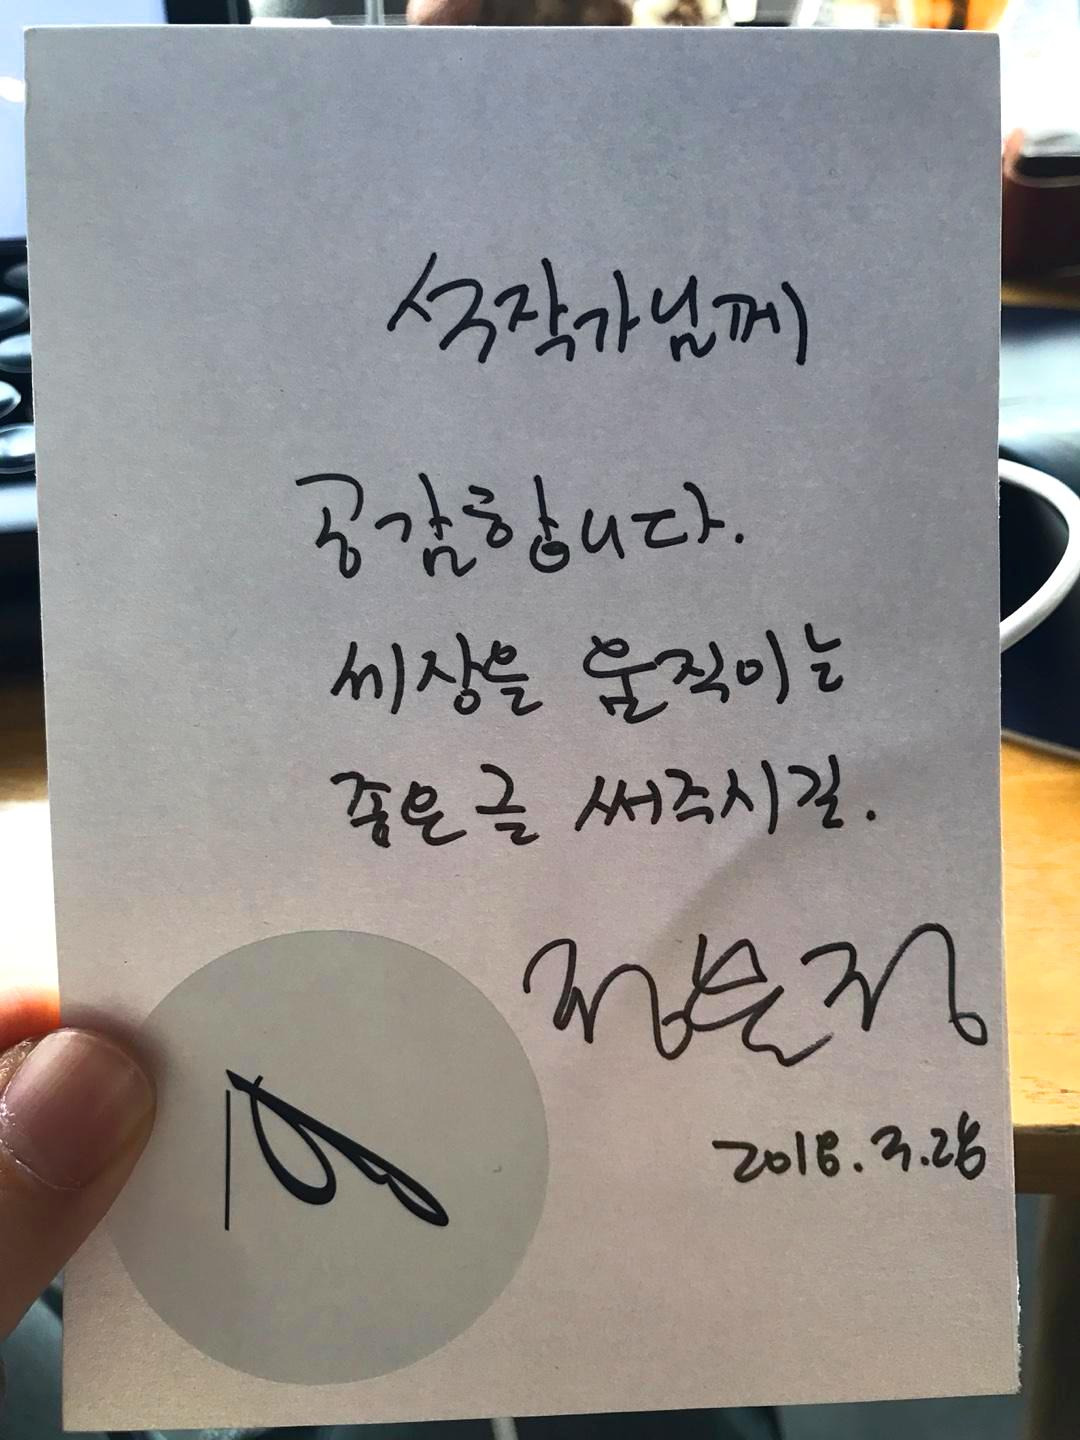 석작가님께
공감합니다.
세상을 움직이는
좋은 글 써주시길.
정은정
2018.3.28